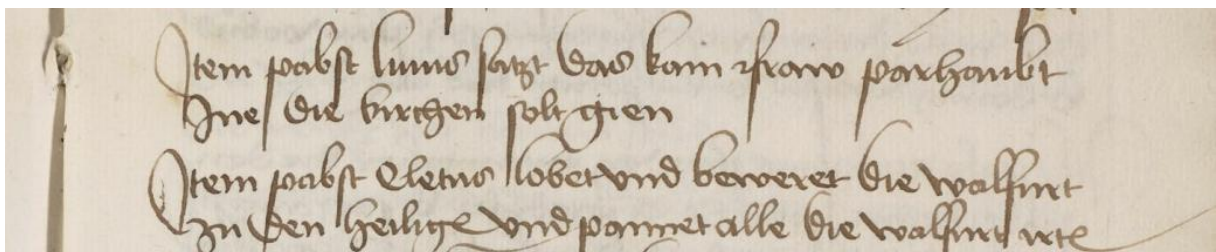 Item pabst linus satzt das kain fraw parhaubt
Jne die kirchen solt gien
Item pabst Cletus lobet vnd beweret die walfurt
Zu den heilige vnd pannet alle die walfurt irte